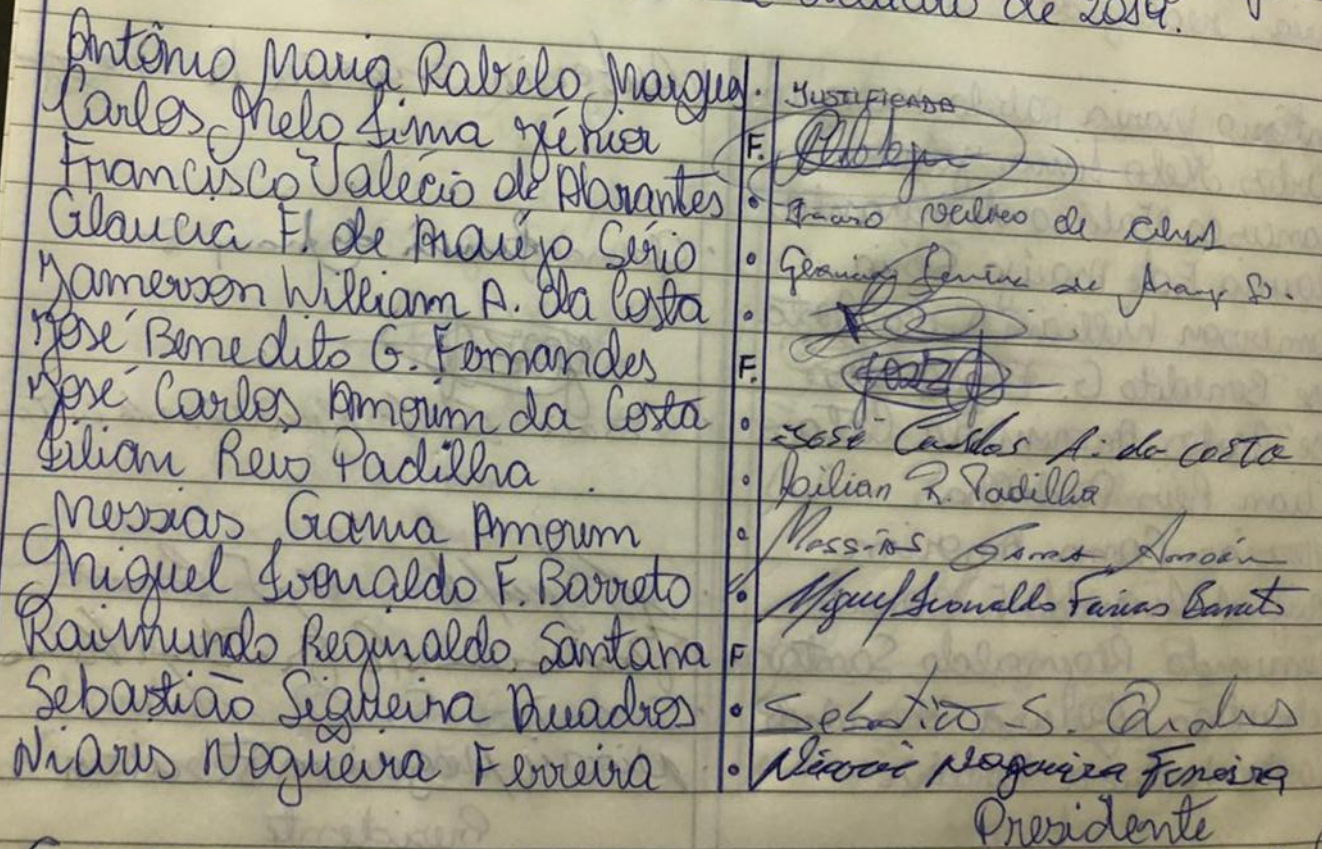 de 2019.
Antônio Maria Rabelo Margua . JUSTIFICADA
Carlos Melo Lima Júnior F.
Francisco Valécio de Abrantes . de
Glaucia F. de Araújo Sério . de Araujo
Jamerson William A. da Costa .
José Benedito G. Fernandes F.
José Carlos Amorim da Costa . José Carlos A. da COSTA
Lilian Reis Padilha . Lilian R. Padilha
Messias Gama Amorim . Messias Gama Amorim
Miguel Ivonaldo F. Barreto . Miguel Ivonaldo Farias Barreto
Raimundo Reginaldo Santana F
Sebastião Siqueira Quadros . Sebastião S. Quadros
Niaris Nogueira Ferreira . Nogueira Ferreira
Presidente